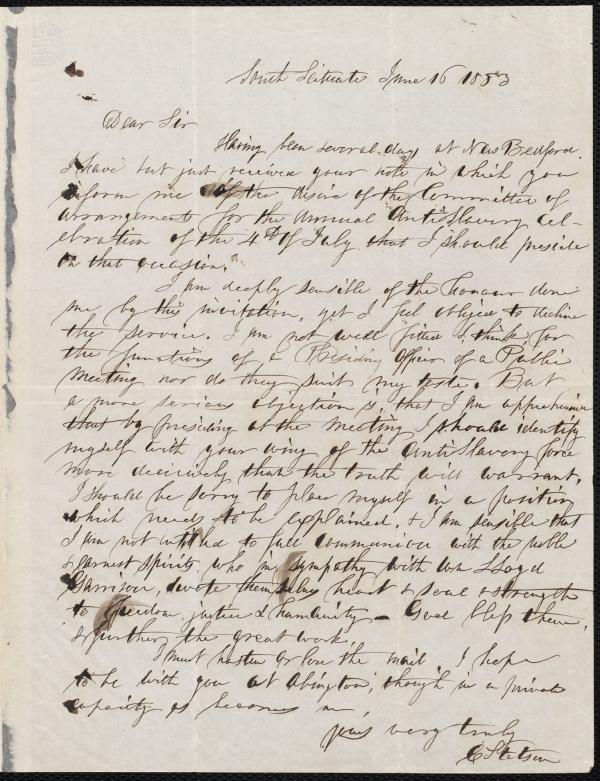 South Scituate June 16 1853
Dear Sir
Having been several days at New Bedford.
I have but just received your note in which you
inform me of the desire of the Committee of
arrangement for the annual AntiSlavery Cel-
ebration of the 4th of July that I should preside
on that occasion.
I am deeply sensible of the honour done
me by this invitation, yet I feel obliged to decline
the service. I am not well fitted I think, for
the functions of a Presiding Officer of a Public
Meeting nor do they suit my taste. But
a more serious objection is that I am apprehensive
that by presiding at the meeting I should identify
myself with your wing of the AntiSlavery force
more decisively than the truth will warrant.
I should be sorry to place myself in a position
which needs to be explained. & I am sensible that
I am not intitled to full communion with the noble
& earnest spirits, who in sympathy with Wm Lloyd
Garrison, devote themselves heart & soul & strength
to freedom, justice & humanity - God bless them,
& further the great work.
I must hasten or lose the mail. I hope
to be with you at Abington, though in a private
capacity as becomes me
yours very truly
C Stetson